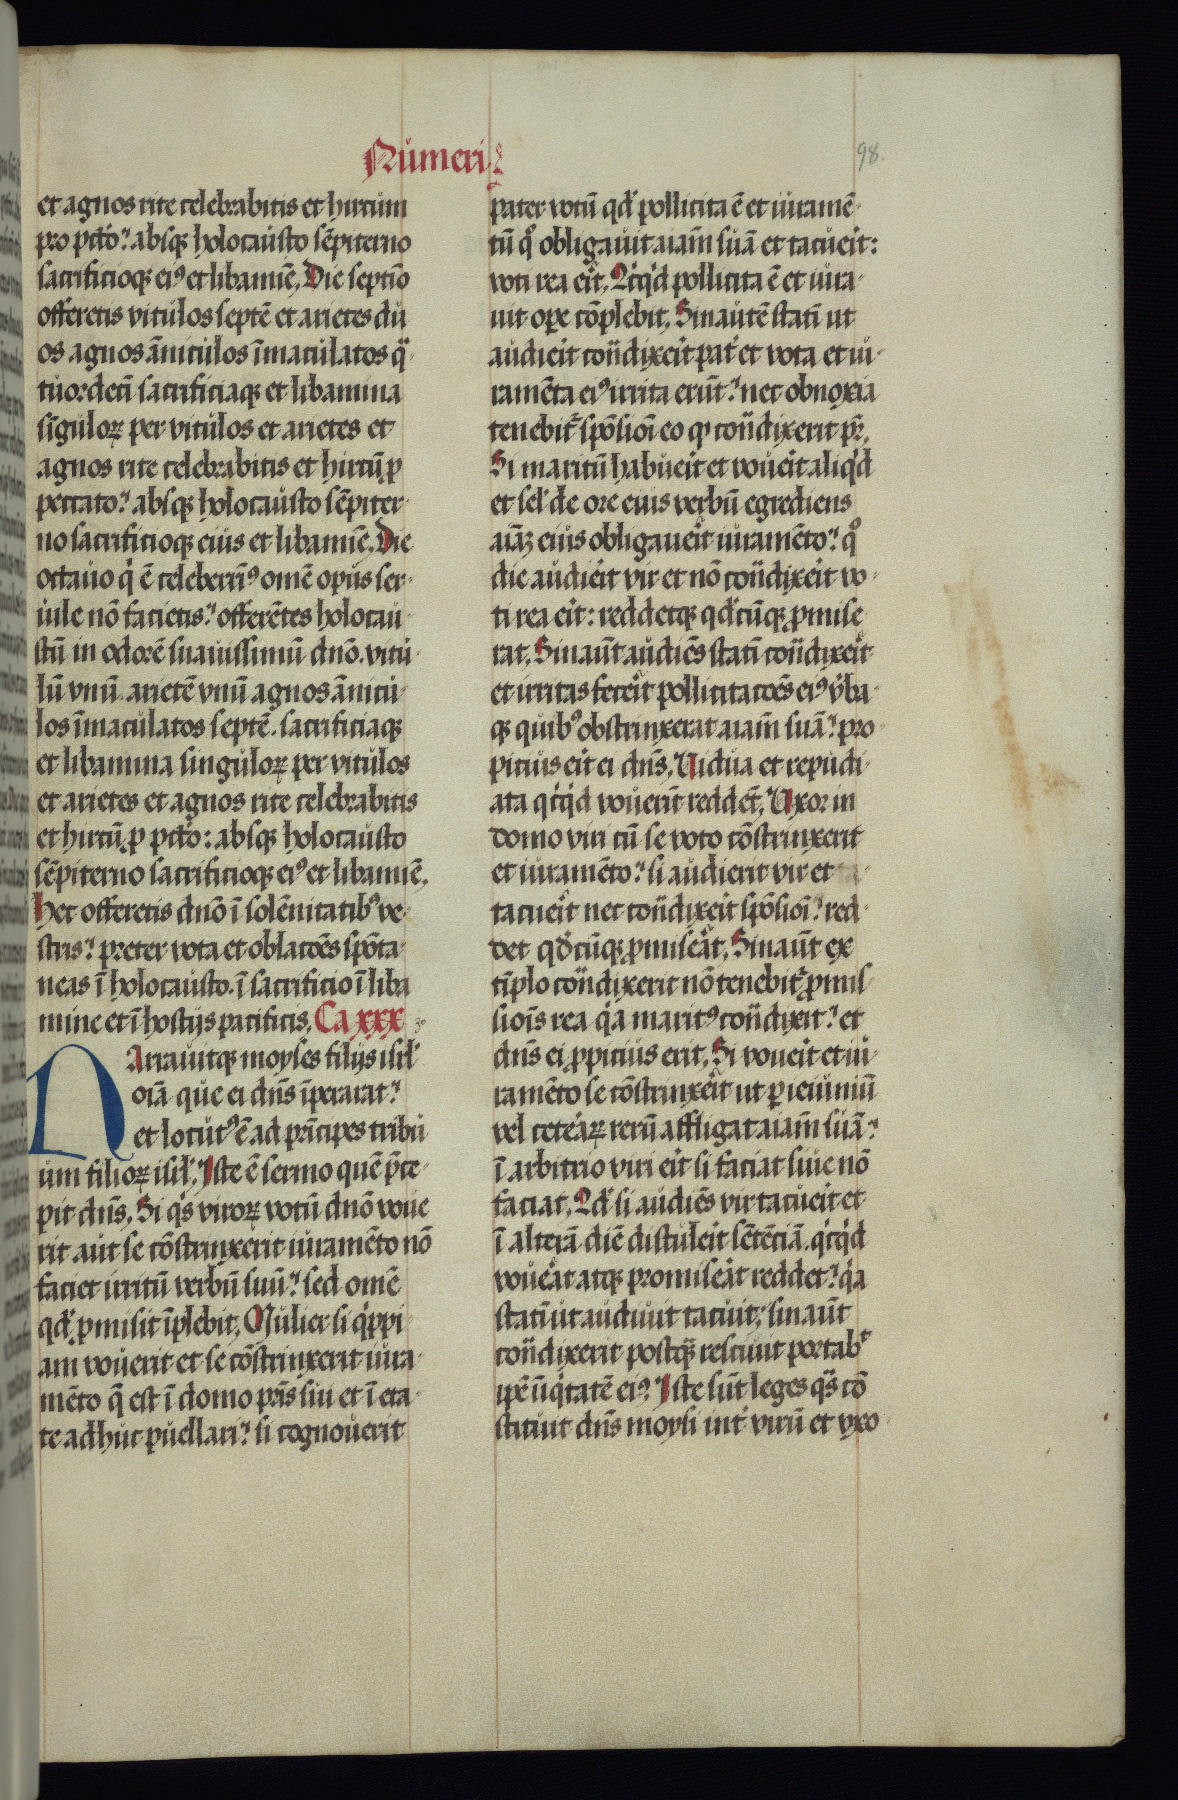 Numeri
98.
et agnos rite celebrabitis et hircum
pro pctō? absq̄ holocausto sēpiterno
sacrificioq̄ eiꝰ et libamīe, Die septīo
offeretis vitulos septē et arietes du
os agnos ānitulos īmaculatos q̄
tuordecī sacrificiaq̄ et libamina
sīguloꝝ per vitulos et arietes et
agnos rite celebrabitis et hircū ꝓ
peccato? absq̄ holocausto sēpiter-
no sacrificioq̄ eius et libamīe. Die
octauo q̇ ē celeberrīꝰ omē opus ser-
uile nō facietis? offerētes holocau-
stū in odorē suauissimū dnō. vitu-
lū vnū arietē vnū agnos ānicu-
los īmaculatos septē. sacrificiaq̄
et libamina singuloꝝ per vitulos
et arietes et agnos rite celebrabitis
et hircū ꝓ pctō: absq̄ holocausto
sēpiterno sacrificioq̄ eiꝰ et libamīe.
Hec offeretis dnō ī solēnitatibꝰ ve-
stris? preter vota et oblacōes spōta-
neas ī holocausto. ī sacrificio ī liba
mine et ī hostijs pacificis, Ca xxx
Narrauitq̄ moyses filijs isrl̄
oīā que ei dn̄s īperarat?
et locutꝰ ē ad prīcipes tribu
um filioꝝ isrl̄, Iste ē sermo quē p̄ce-
pit dn̄s, Si q̇s viroꝝ votū dnō voue
rit aut se cōstrinxerit iuramēto nō
faciet irritū verbū suū? sed omē
qd̄ ꝓmisit īplebit, Mulier si q̇ppi-
am vouerit et se cōstrinxerit iura-
mēto q̄ est ī domo pr̄is sui et ī eta-
te adhuc puellari? si cognouerit
pater votū qd̄ pollicita ē et iuramē-
tū q̊ obligauit aīam suā et tacueīt:
voti rea eīt, Qcq̇d pollicita ē et iura-
uit oꝑe cōplebit, Sin autē statī ut
audieīt cōtͣdixeīt pat̄ et vota et iu-
ramēta eiꝰ irrita erūt? nec obnoxia
tenebit̄ spōsioī eo ꝙ cōtͣdixerit pr̄,
Si maritū habueīt et voueīt aliq̇d
et sel̄ de ore eius verbū egrediens
aīaꝫ eius obligaueīt iuramēto? q̊
die audieīt vir et nō cōtͣdixeīt vo-
ti rea eīt: reddetq̄ qd̄cūq̄ ꝓmise
rat, Sin aūt audiēs statī cōtͣdixeīt
et irritas feceīt pollicitacōes eiꝰ v̄ba-
q̄ quibꝰ obstrinxerat aīam suā? pro-
picius eīt ei dn̄s, Uidua et repudi-
ata q̇cq̇d vouerīt reddēt, Uxor in
domo viri cū se voto cōstrinxerit
et iuramēto? si audierit vir et
tacueīt nec cōtͣdixeīt spōsioī? red-
det qd̄cūq̄ ꝓmiseāt, Sin aūt ex
tīplo cōtͣdixerit nō tenebit̄ ꝓmis-
sioīs rea q̇a maritꝰ cōtͣdixit? et
dn̄s ei ꝓpicius erit, Si voueīt et iu-
ramēto se cōstrinxeīt ut ꝑ ieiuniū
vel ceteāꝝ rerū affligat aīam suā?
ī arbitrio viri eīt si faciat siue nō
faciat, Qd̄ si audiēs vir tacueīt et
ī alterā diē distuleīt sētēciā. q̇cq̇d
voueāt atq̄ promiseāt reddet? q̇a
statī ut audiuit tacuit; sin aūt
cōtͣdixerit postq̄ resciuit portab̄
ip̄e īiq̇tatē eiꝰ? Iste sūt leges q̄s cō
stituit dn̄s moysi int̄ virū et vxo-